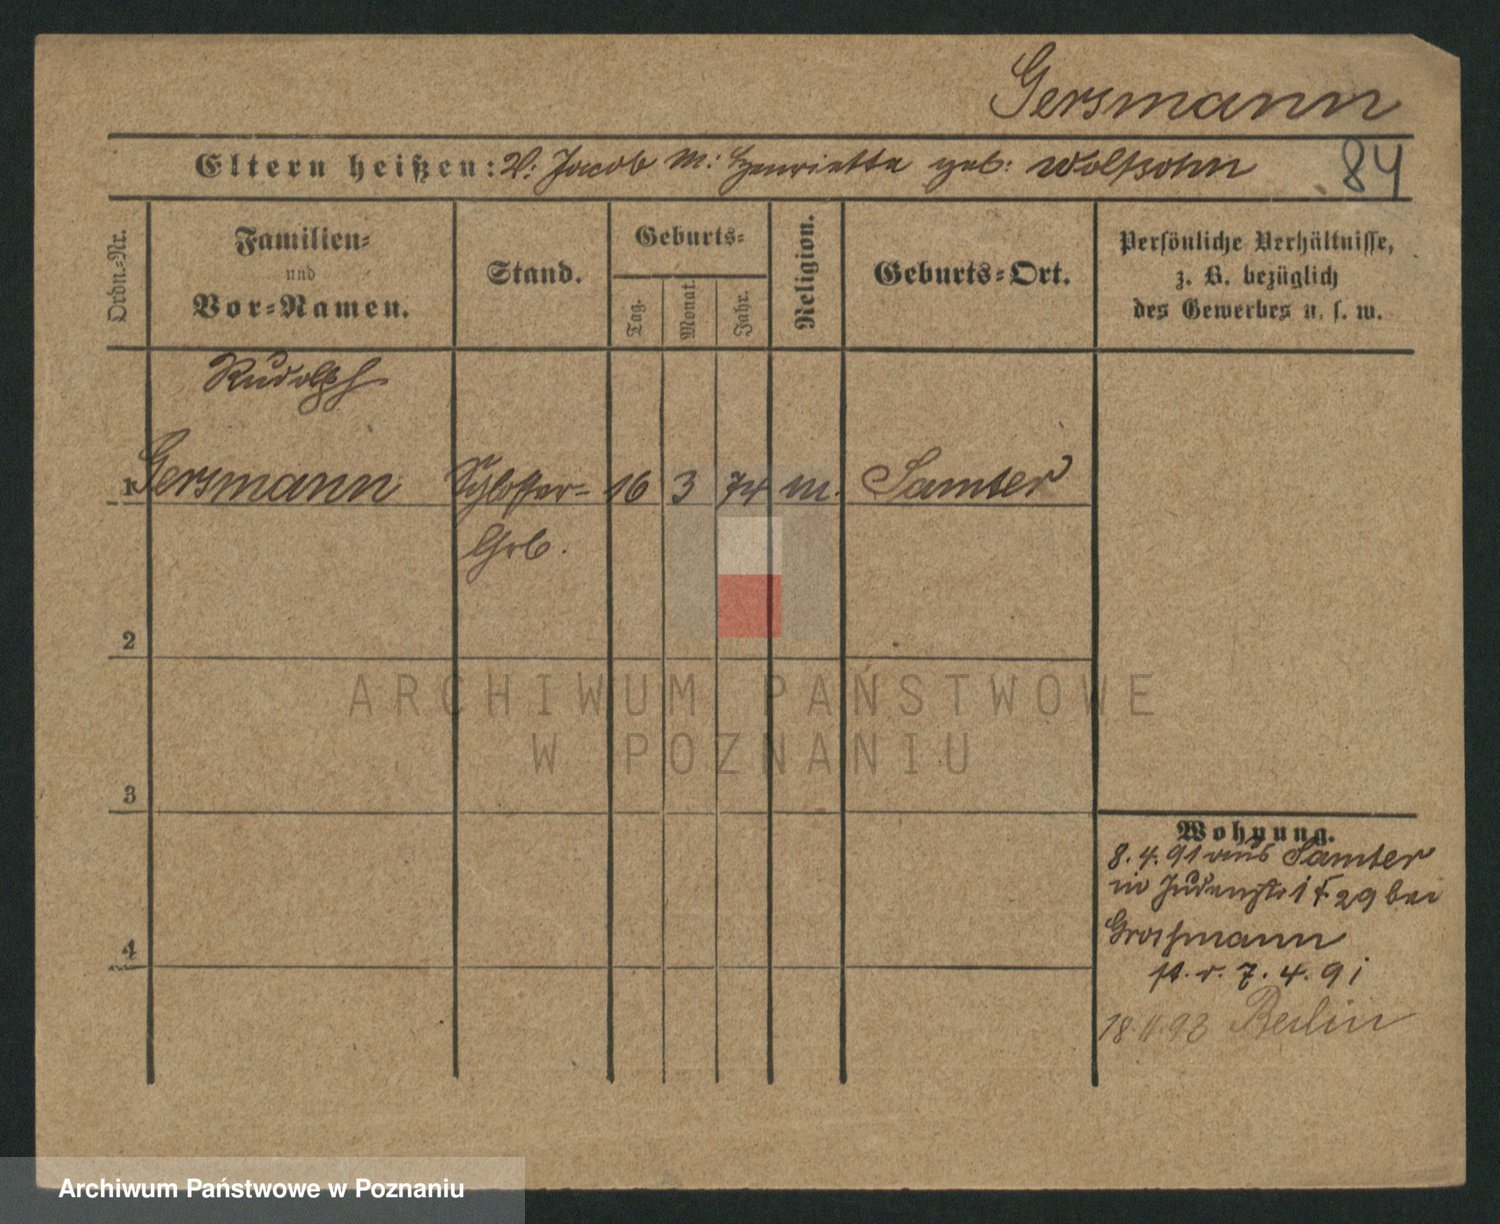 Gersmann
Eltern heißen: V: Jacob M: Henriette geb: Wolfsohn
84
Ordn.-Nr.
Familien-
und
Vor-Namen.
Stand.
Geburts-
Tag.
Monat.
Jahr.
Religion.
Geburts-Ort.
Persönliche Verhältnisse,
z. B. bezüglich
des Gewerbes u. s. w.
Rudolph
1 Gersmann Schlosser- 16 3 74 m. Samter
2
3
4
Wohnung.
8.4.91 aus Samter
in Judenstr 1 F. 29 bei
Grossmann
7.4.91
18.11.93 Berlin
ARCHIWUM PAŃSTWOWE
W POZNANIU
Archiwum Państwowe w Poznaniu